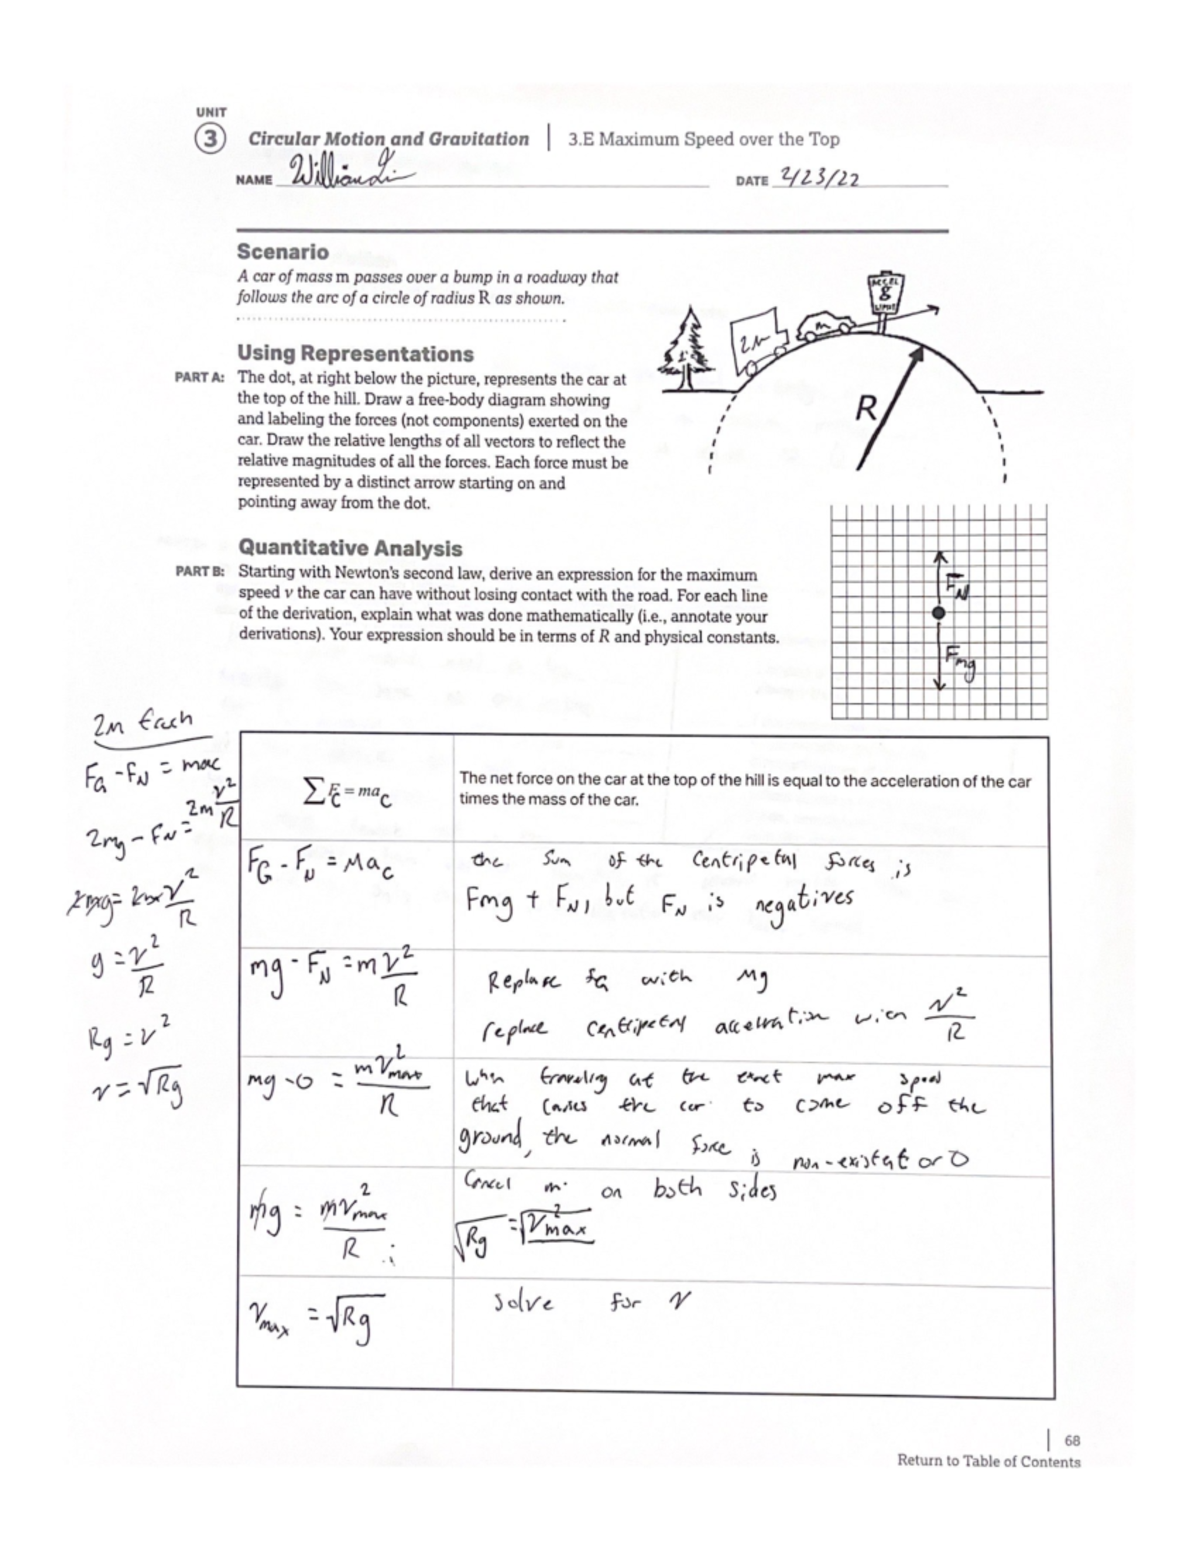 UNIT
3 Circular Motion and Gravitation | 3.E Maximum Speed over the Top
NAME William Li DATE 2/23/22
Scenario
A car of mass m passes over a bump in a roadway that
follows the arc of a circle of radius R as shown.
ACCEL
g
LIMIT
2M
m
R
Using Representations
PART A: The dot, at right below the picture, represents the car at
the top of the hill. Draw a free-body diagram showing
and labeling the forces (not components) exerted on the
car. Draw the relative lengths of all vectors to reflect the
relative magnitudes of all the forces. Each force must be
represented by a distinct arrow starting on and
pointing away from the dot.
F_N
F_mg
Quantitative Analysis
PART B: Starting with Newton's second law, derive an expression for the maximum
speed v the car can have without losing contact with the road. For each line
of the derivation, explain what was done mathematically (i.e., annotate your
derivations). Your expression should be in terms of R and physical constants.
2m Each
F_G - F_N = mac
2mg - F_N = 2m v²/R
2mg = 2m v²/R
g = v²/R
Rg = v²
v = √Rg
∑F_C = ma_C
The net force on the car at the top of the hill is equal to the acceleration of the car
times the mass of the car.
F_G - F_N = Ma_C
the sum of the centripetal forces is
Fmg + F_N, but F_N is negatives
mg - F_N = m v²/R
Replace F_G with Mg
replace centripetal acceleration with v²/R
mg - 0 = mv²max/R
when traveling at the exact max speed
that causes the car to come off the
ground, the normal force is non-existat or 0
mg = mv²max/R
Cancel m on both sides
√Rg = √v²max
v_max = √Rg
solve for v
68
Return to Table of Contents